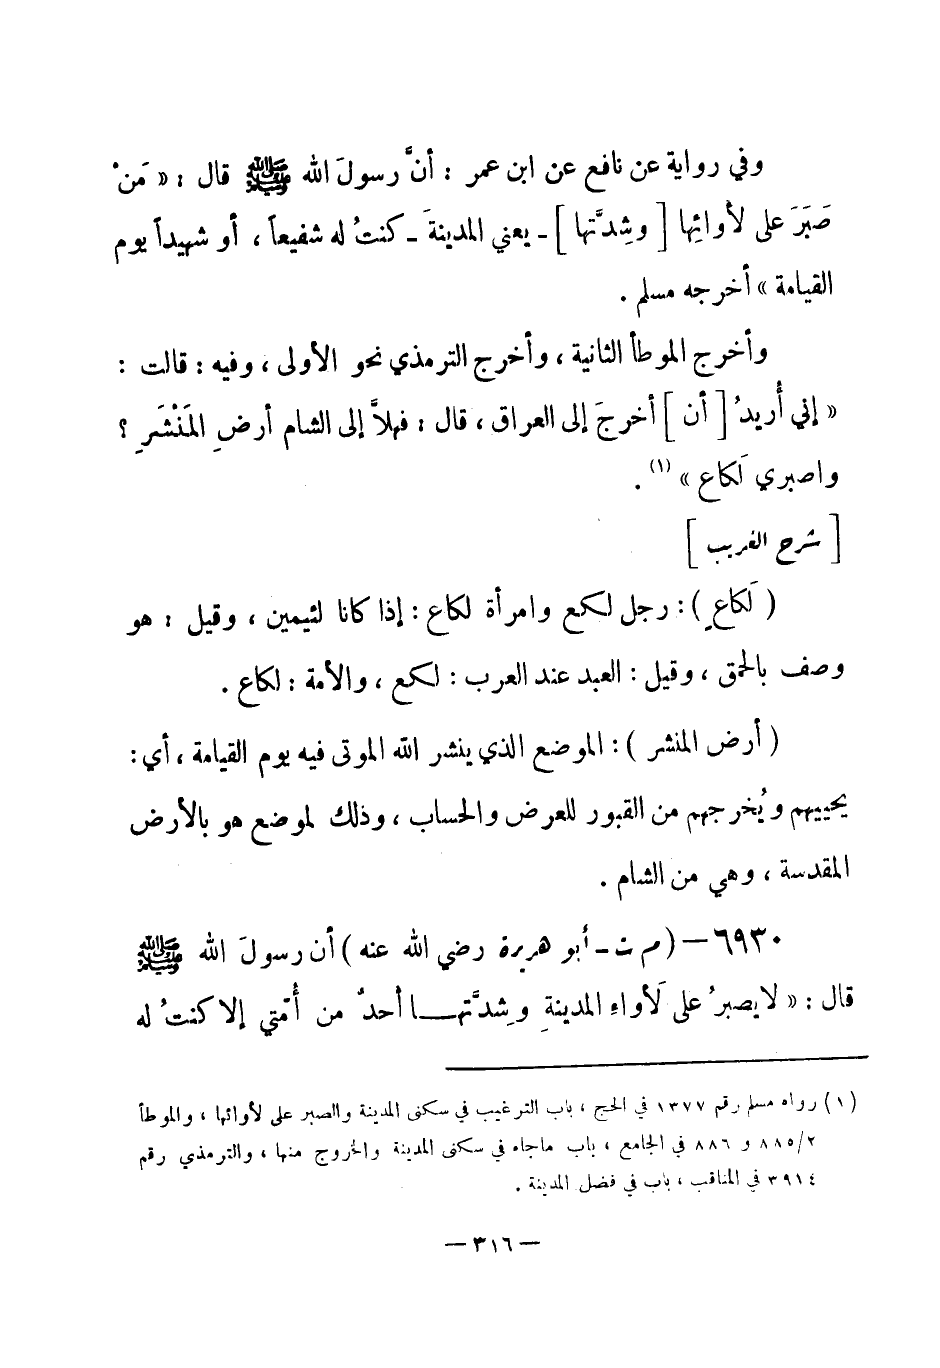 وفي رواية عن نافع عن ابن عمر : أنَّ رسولَ الله ﷺ قال : « مَنْ
صَبَرَ على لأوائِها [ وشِدَّتها ] ـ يعني المدينةَ ـ كنتُ له شفيعاً ، أو شهيداً يوم
القيامة » أخرجه مسلم .
وأخرج الموطأ الثانية ، وأخرج الترمذي نحو الأولى ، وفيه : قالت :
« إني أُريدُ [ أن ] أخرجَ إلى العراق ، قال : فهلاَّ إلى الشام أرضِ المَنْشَرِ ؟
واصبري لَكاع » (١) .
[ شرح الغريب ]
( لَكاعِ ) : رجل لكع وامرأة لكاع : إذا كانا لئيمين ، وقيل : هو
وصف بالحمق ، وقيل : العبد عند العرب : لكع ، والأمة : لكاع .
( أرض المنشر ) : الموضع الذي ينشر الله الموتى فيه يوم القيامة ، أي :
يحييهم ويُخرجهم من القبور للعرض والحساب ، وذلك لموضع هو بالأرض
المقدسة ، وهي من الشام .
٦٩٣٠ — ( م ت ـ أبو هريرة رضي الله عنه ) أن رسولَ الله ﷺ
قال : « لا يصبرُ على لَأواءِ المدينةِ وشِدَّتهــا أحدٌ من أُمَّتي إلا كنتُ له
(١) رواه مسلم رقم ١٣٧٧ في الحج ، باب الترغيب في سكنى المدينة والصبر على لأوائها ، والموطأ
٨٨٥/٢ و ٨٨٦ في الجامع ، باب ماجاء في سكنى المدينة والخروج منها ، والترمذي رقم
٣٩١٤ في المناقب ، باب في فضل المدينة .
— ٣١٦ —